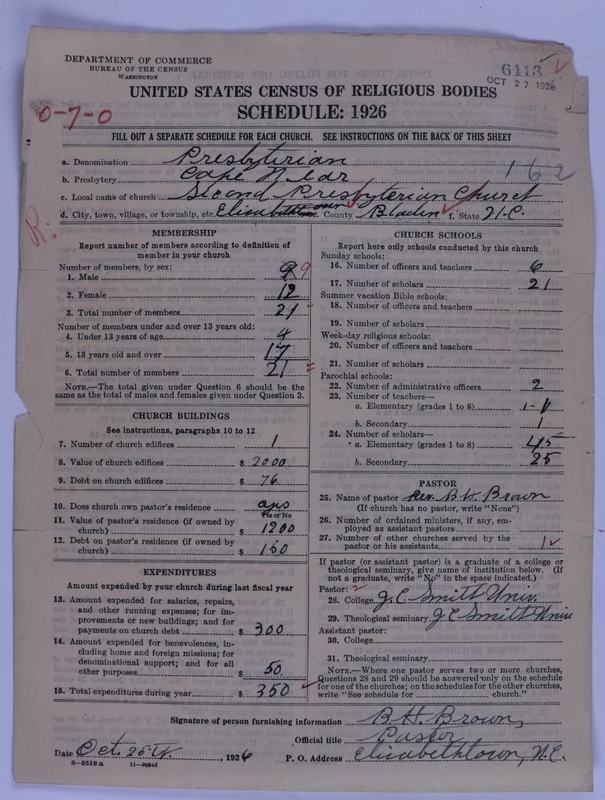 DEPARTMENT OF COMMERCE
BUREAU OF THE CENSUS
WASHINGTON
6113
OCT 27 1926
UNITED STATES CENSUS OF RELIGIOUS BODIES
SCHEDULE: 1926
0-7-0
FILL OUT A SEPARATE SCHEDULE FOR EACH CHURCH. SEE INSTRUCTIONS ON THE BACK OF THIS SHEET
a. Denomination Presbyterian
b. Presbytery Cape Fear 162
c. Local name of church Second Presbyterian Church
d. City, town, village, or township, etc. e. County Bladen f. State N.C.
R.
MEMBERSHIP
Report number of members according to definition of
member in your church
Number of members, by sex:
1. Male 9 9
2. Female 12
3. Total number of members 21
Number of members under and over 13 years old:
4. Under 13 years of age 4
5. 13 years old and over 17
6. Total number of members 21
NOTE.—The total given under Question 6 should be the
same as the total of males and females given under Question 3.
CHURCH BUILDINGS
See instructions, paragraphs 10 to 12
7. Number of church edifices 1
8. Value of church edifices $ 2000
9. Debt on church edifices $ 76
10. Does church own pastor's residence
Yes or No
11. Value of pastor's residence (if owned by
church) $ 1200
12. Debt on pastor's residence (if owned by
church) $ 160
EXPENDITURES
Amount expended by your church during last fiscal year
13. Amount expended for salaries, repairs,
and other running expenses; for im-
provements or new buildings; and for
payments on church debt $ 300
14. Amount expended for benevolences, in-
cluding home and foreign missions; for
denominational support; and for all
other purposes $ 50
15. Total expenditures during year $ 350
CHURCH SCHOOLS
Report here only schools conducted by this church
Sunday schools:
16. Number of officers and teachers 6
17. Number of scholars 21
Summer vacation Bible schools:
18. Number of officers and teachers
19. Number of scholars
Week-day religious schools:
20. Number of officers and teachers
21. Number of scholars
Parochial schools:
22. Number of administrative officers 2
23. Number of teachers—
a. Elementary (grades 1 to 8) 1-1
b. Secondary 1
24. Number of scholars—
a. Elementary (grades 1 to 8) 45
b. Secondary 25
PASTOR
25. Name of pastor Rev. B.H. Brown
(If church has no pastor, write "None")
26. Number of ordained ministers, if any, em-
ployed as assistant pastors
27. Number of other churches served by the
pastor or his assistants 1
If pastor (or assistant pastor) is a graduate of a college or
theological seminary, give name of institution below. (If
not a graduate, write "No" in the space indicated.)
Pastor:
28. College J C Smith Univ.
29. Theological seminary J C Smith Univ
Assistant pastor:
30. College
31. Theological seminary
NOTE.—Where one pastor serves two or more churches,
Questions 28 and 29 should be answered only on the schedule
for one of the churches; on the schedules for the other churches,
write "See schedule for church."
Signature of person furnishing information B.H. Brown,
Official title Pastor
Date Oct. 25th, 1926 P. O. Address Elizabethtown, N.C.
8—5518a 11—9084d